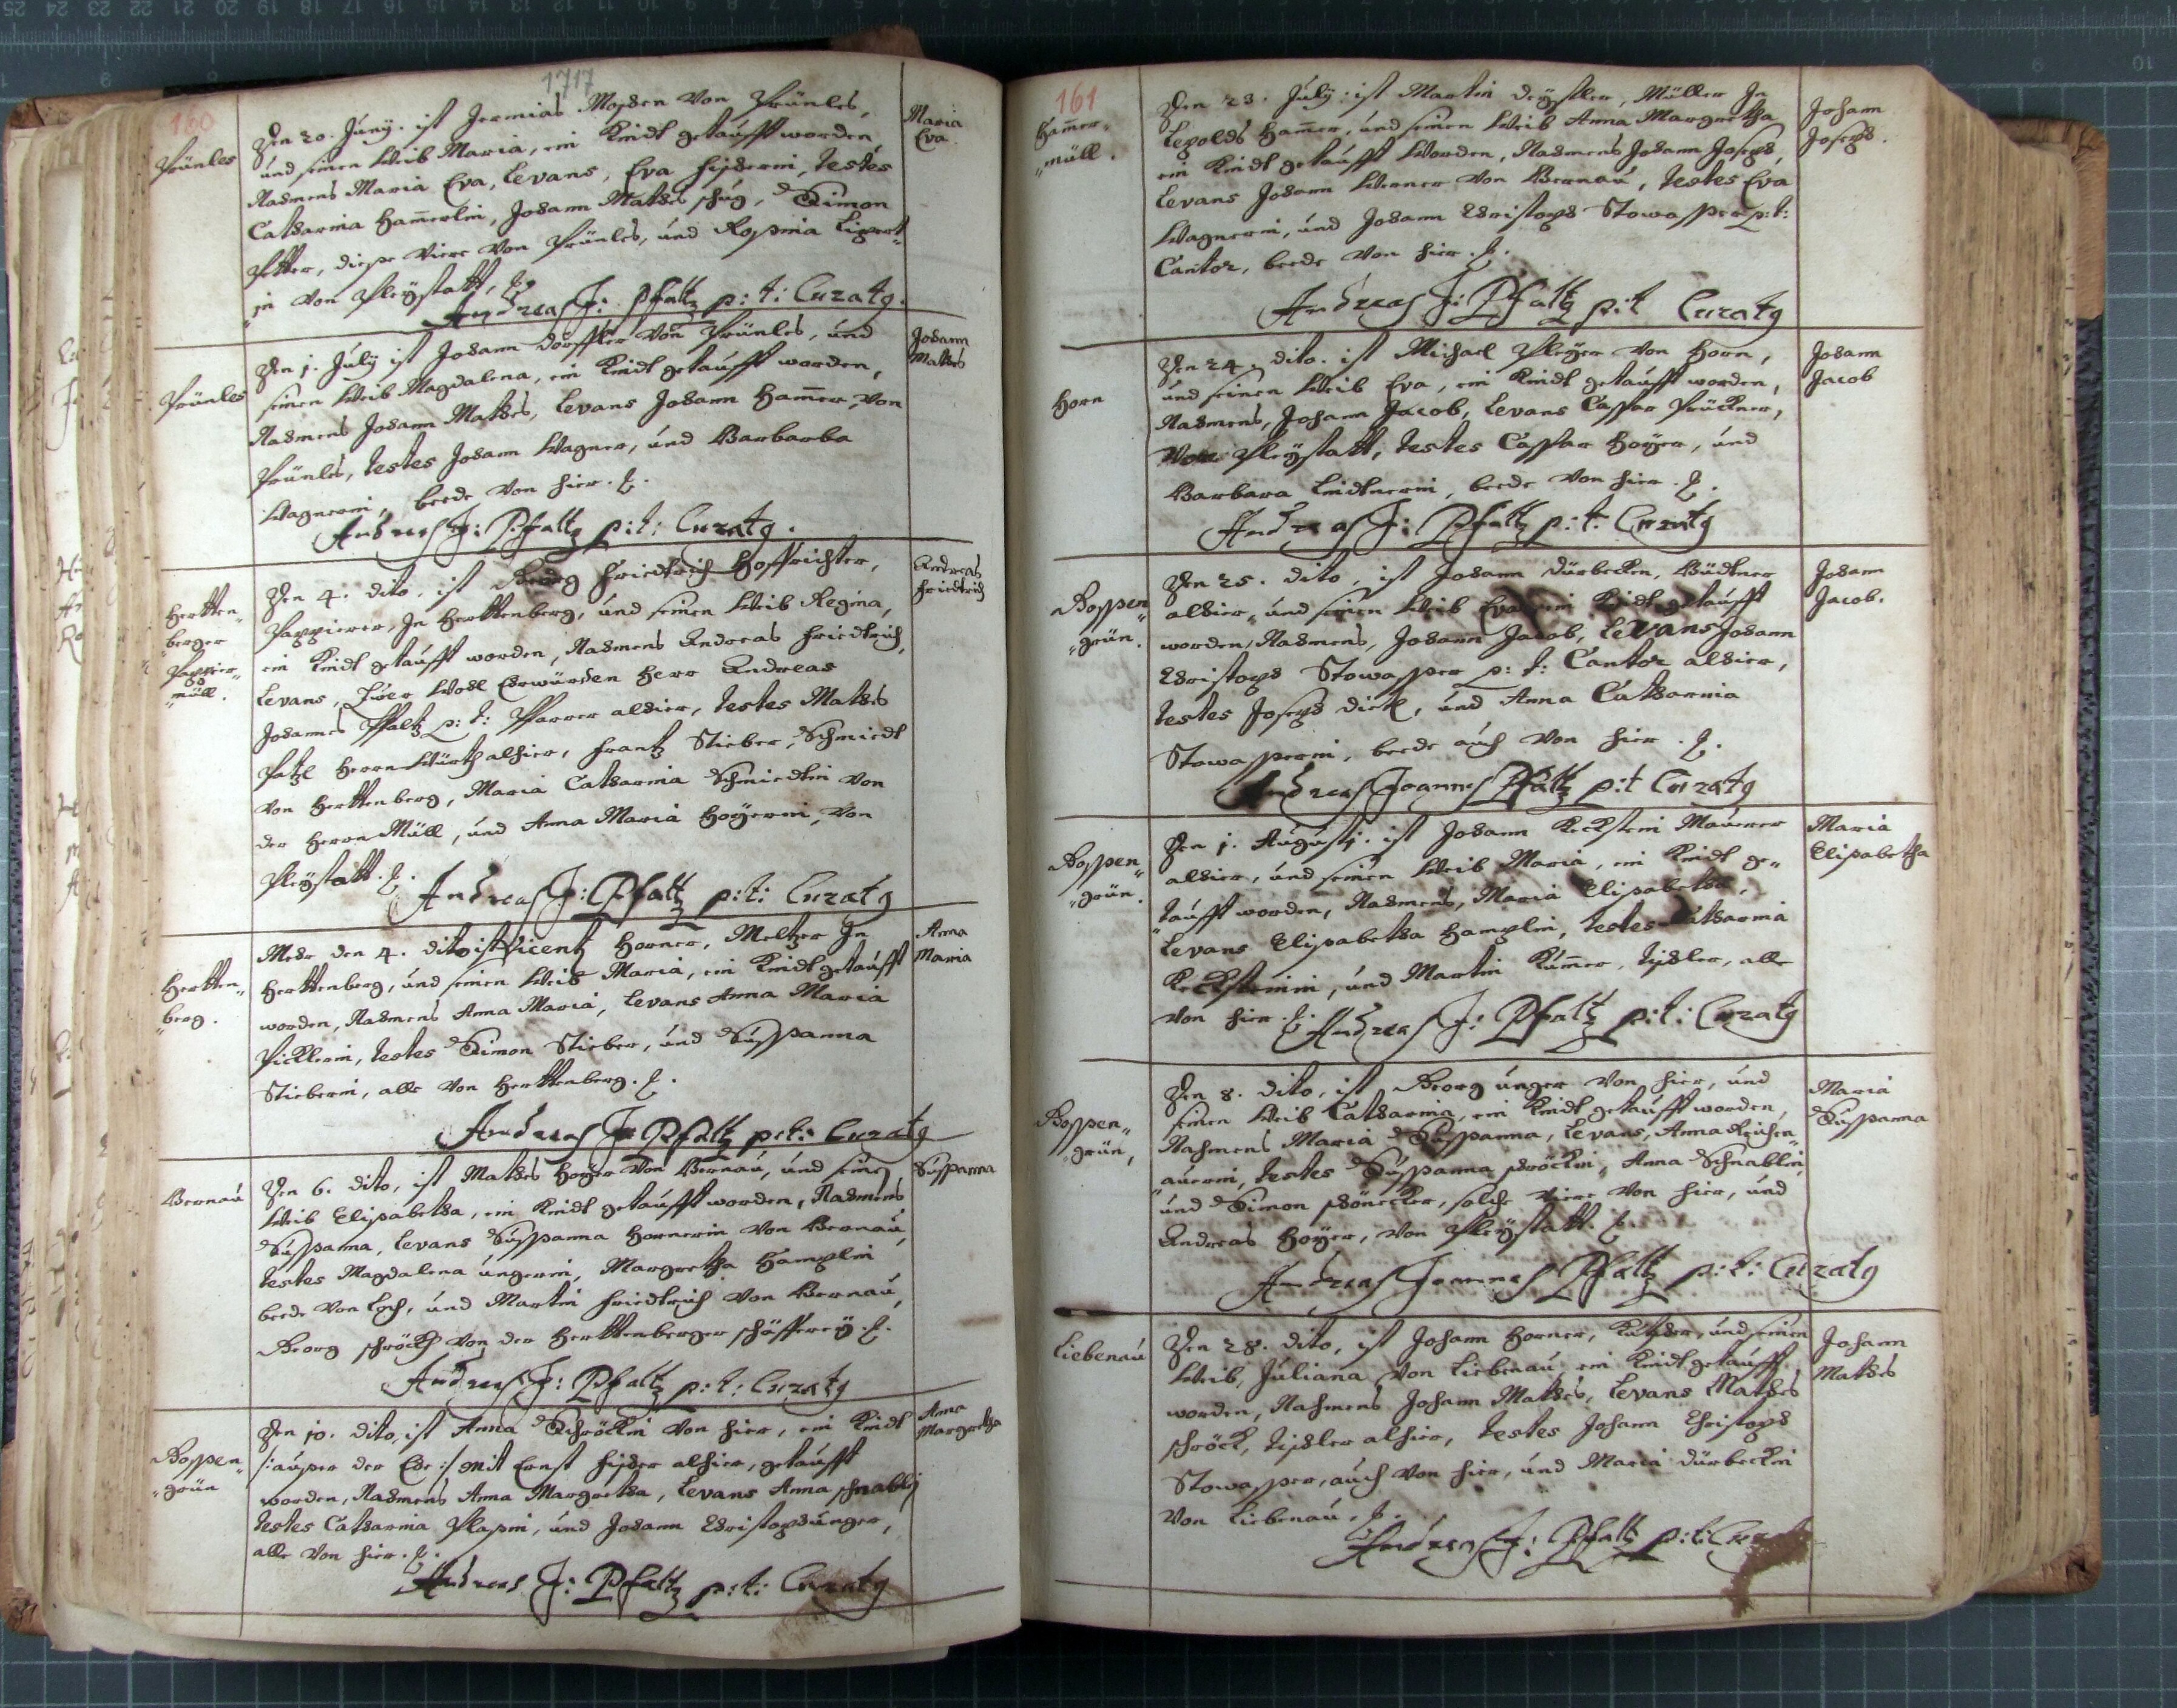 1717
160
Prünles
Den 20. Juny. ist Jeremias Mosben von Prünles,
und seinen Weib Maria, ein Kindt getaufft worden,
Nahmens Maria Eva, Levans, Eva Fischerin, testes
Catharina Ham̄erlin, Johann Mathes schug, Simon
Petter, diese viere von Prünles, und Rosina Lipert„
„in von Pleystatt, 
Andreas J: Pfaltz p: t: Curatg.
Maria
Eva
Prünles
Den 1. July ist Johann Dörffler von Prünles, und
seinen Weib Magdalena, ein Kindt getaufft worden,
Nahmens Johann Mathes, Levans Johann Ham̄er, von
Prünles, testes Johann Wagner, und Barbarba
Wagnerin, beede von hier.
Andreas J: Pfaltz p: t: Curatg.
Johann
Mathes
Hertten„
„berger
Pappier„
„müll.
Den 4. dito. ist Georg Friedtrich Hoffrichter,
Pappierer, In Herttenberg, und seinen Weib Regina,
ein Kindt getaufft worden, Nahmens Andreas Friedtrich,
Levans, Wohl Ehrwürden Herr Andreas
Johannes Pfaltz p: t: Pfarrer alhier, testes Mathes
Patzl Herrn Würth alhier, Frantz Stieber, Schmiedt
von Herttenberg, Maria Catharina Schmiedtin von
der Herrn Müll, und Anna Maria Hoÿerin, von
Pleystatt.
Andreas J: Pfaltz p: t: Curatg
Andreas
Friedtrich
Hertten„
„berg.
Mehr den 4. dito ist Vicentz Horner, Meltzer In
Herttenberg, und seinen Weib Maria, ein Kindt getaufft
worden, Nahmens Anna Maria, Levans Anna Maria
Picklerin, testes Simon Stieber, und Sussanna
Stieberin, alle von Herttenberg.
Andreas J: Pfaltz p: t: Curatg
Anna
Maria
Bernau
Den 6. dito, ist Mathes Hoÿer von Bernau, und seine
Weib Elisabetha, ein Kindt getaufft worden, Nahmens
Sussanna, Levans Sussanna Hornerin von Bernau,
testes Magdalena Ungerin, Margretha Hamplin
beede von Loch, und Martin Friedtrich von Bernau,
Georg schröck von der Herttenberger schäfferey.
Andreas J: Pfaltz p: t: Curatg
Sussanna
Koppen„
„grün
Den 10. dito, ist Anna Schröckin von hier, ein Kindt
/:ausser der Ehe:/ mit Ernst Fischer alhier, getaufft
worden, Nahmens Anna Margretha, Levans Anna schnablin
testes Catharina Plassin, und Johann Christoph Unger,
alle von hier.
Andreas J: Pfaltz p: t: Curatg
Anna
Margretha
161
Ham̄er„
„müll.
Den 23. July: ist Martin Deÿstler, Müller In
Lepolds Ham̄er, und seinen Weib Anna Margretha
ein Kindt getaufft worden, Nahmens Johann Joseph,
Levans Johann Werner von Bernau, testes Eva
Wagnerin, und Johann Christoph Stowasser p: t:
Cantor, beede von hier.
Andreas J: Pfaltz p: t Curatg
Johann
Joseph.
Horn
Den 24. dito. ist Michael Pleÿer von Horn,
und seinen Weib Eva, ein Kindt getaufft worden,
Nahmens, Johann Jacob, Levans Caspar Prückner,
von Pleystatt, testes Caspar Hoÿer, und
Barbara Lindtnerin, beede von hier.
Andreas J: Pfaltz p: t: Curatg
Johann
Jacob
Koppen„
„grün.
Den 25. dito, ist Johann Dürbecken, Büdtner
alhier, und seinen Weib Eva, ein Kindt getaufft
worden, Nahmens, Johann Jacob, Levans Johann
Christoph Stowasser p: t: Cantor alhier,
testes Joseph Dietl, und Anna Catharina
Stowasserin, beede auch von hier.
Andreas Joannes Pfaltz p: t Curatg
Johann
Jacob.
Koppen„
„grün.
Den 1. Augusti. ist Johann Keckstein Maurer
alhier, und seinen Weib Maria, ein Kindt ge„
„taufft worden, Nahmens, Maria Elisabetha,
Levans Elisabetha Hamplin, testes Catharina
Kecksteinin, und Martin Kum̄er, tischler, alle
von hier.
Andreas J: Pfaltz p: t: Curatg
Maria
Elisabetha
Koppen„
„grün,
Den 8. dito, ist Georg Unger von hier, und
seinen Weib Catharina, ein Kindt getaufft worden,
Nahmens Maria Sussanna, Levans, Anna Reichen„
„auerin, testes Sussanna schröckin, Anna Schnablin,
und Simon schönecker, solche viere von hier, und
Andreas Hoÿer, von Pleystatt.
Andreas Joannes Pfaltz p: t: Curatg
Maria
Sussanna
Liebenau
Den 28. dito, ist Johann Horner, Kutscher, und seinen
Weib, Juliana von Liebenau ein Kindt getaufft
worden, Nahmens Johann Mathes, Levans Mathes
schröck, tischler alhier, testes Johann Christoph
Stowasser, auch von hier, und Maria Dürbeckin
von Liebenau.
Andreas J: Pfaltz p: t: Curat
Johann
Mathes